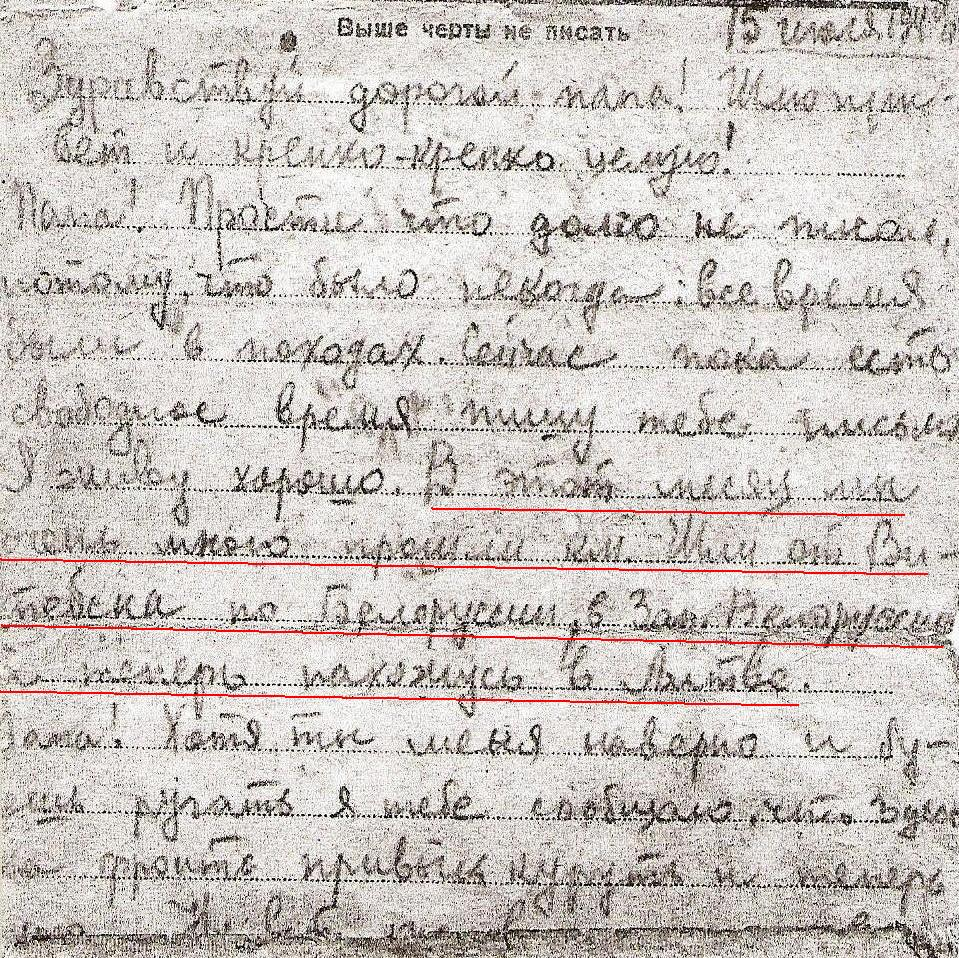 Выше черты не писать
15 июля
Здравствуй дорогой папа! Шлю при-
вет и крепко-крепко целую!
Папа! Прости что долго не писал,
потому, что было некогда: все время
были в походах. Сейчас пока есть
свободное время пишу тебе письмо
Я живу хорошо. В этот месяц мы
очень много прошли км. Шли от Ви-
тебска по Белоруссии, в Зап. Белоруссию
и теперь нахожусь в Литве.
Папа! Хотя ты меня наверно и бу-
ешь ругать я тебе сообщаю, что здесь
на фронте привык курить и теперь